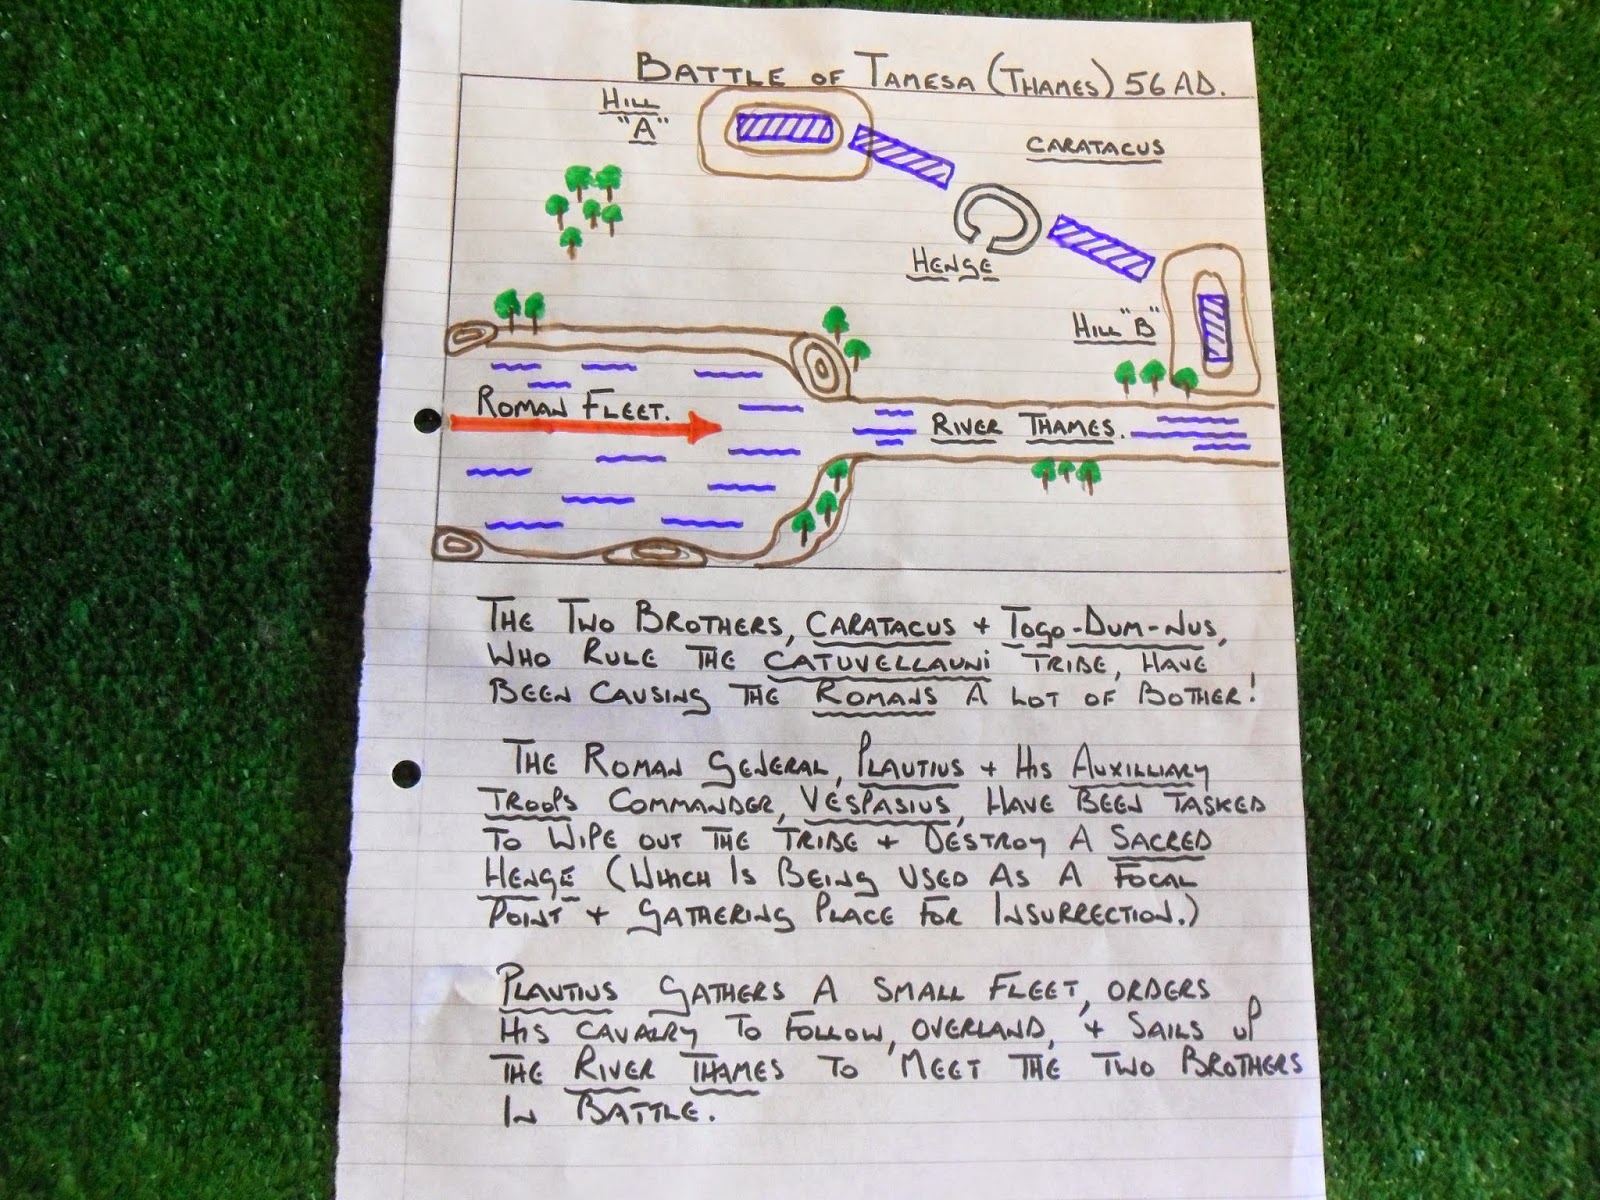 BATTLE OF TAMESA (THAMES) 56 AD.
HILL
"A"
CARATACUS
HENGE
HILL "B"
ROMAN FLEET.
RIVER THAMES.
THE TWO BROTHERS, CARATACUS + TOGO-DUM-NUS,
WHO RULE THE CATUVELLAUNI TRIBE, HAVE
BEEN CAUSING THE ROMANS A LOT OF BOTHER!
THE ROMAN GENERAL, PLAUTIUS + HIS AUXILLIARY
TROOPS COMMANDER, VESPASIUS, HAVE BEEN TASKED
TO WIPE OUT THE TRIBE + DESTROY A SACRED
HENGE (WHICH IS BEING USED AS A FOCAL
POINT + GATHERING PLACE FOR INSURRECTION.)
PLAUTIUS GATHERS A SMALL FLEET, ORDERS
HIS CAVALRY TO FOLLOW, OVERLAND, + SAILS UP
THE RIVER THAMES TO MEET THE TWO BROTHERS
IN BATTLE.